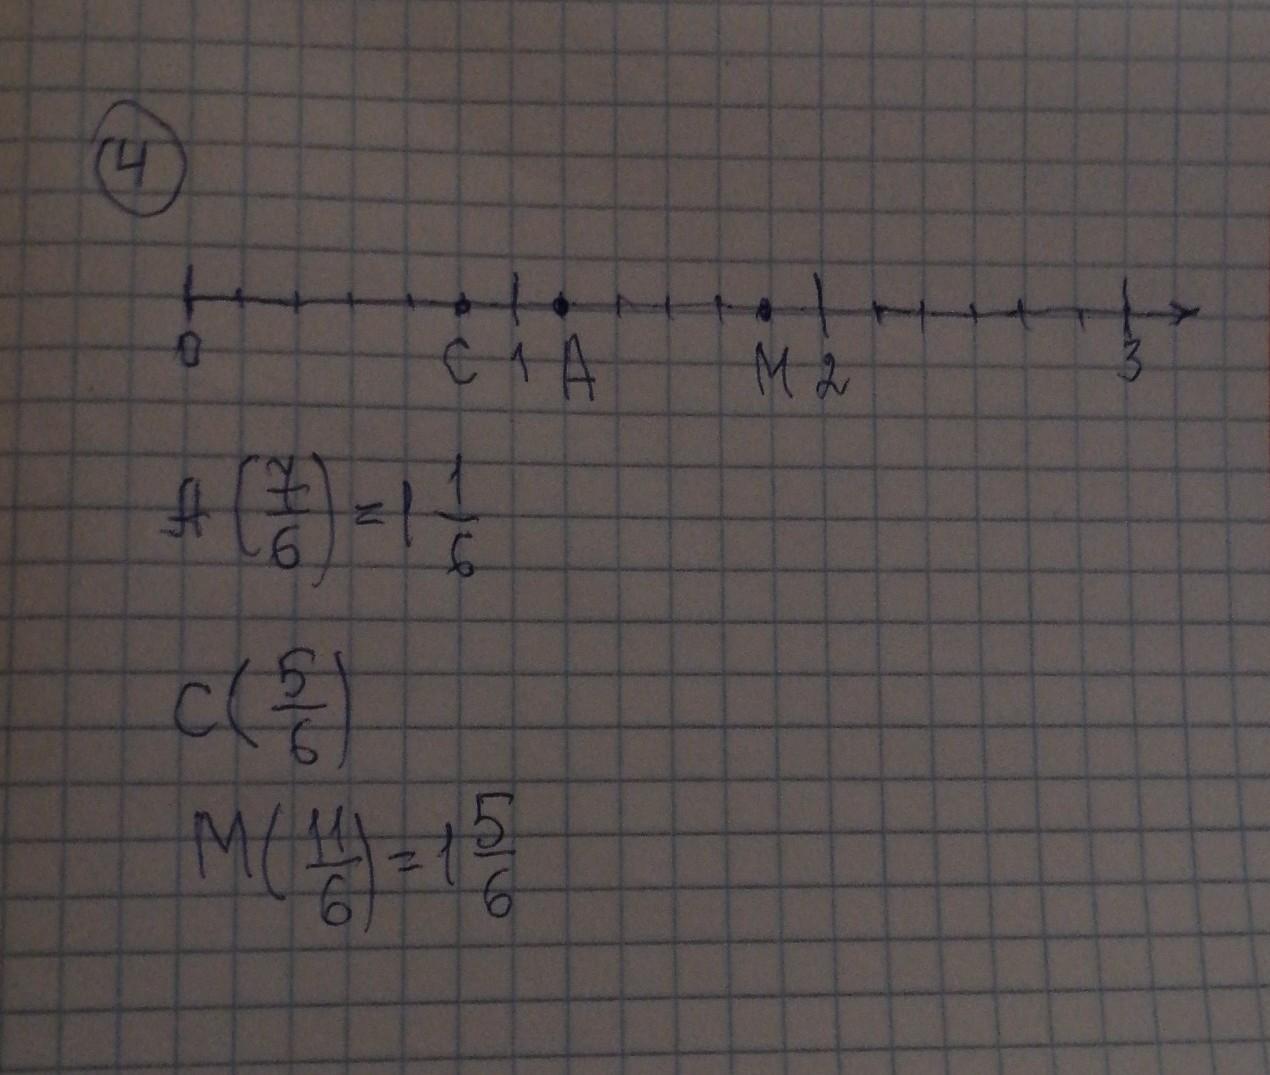 4
0 C 1 A M 2 3
A (7/6) = 1 1/6
C (5/6)
M (11/6) = 1 5/6